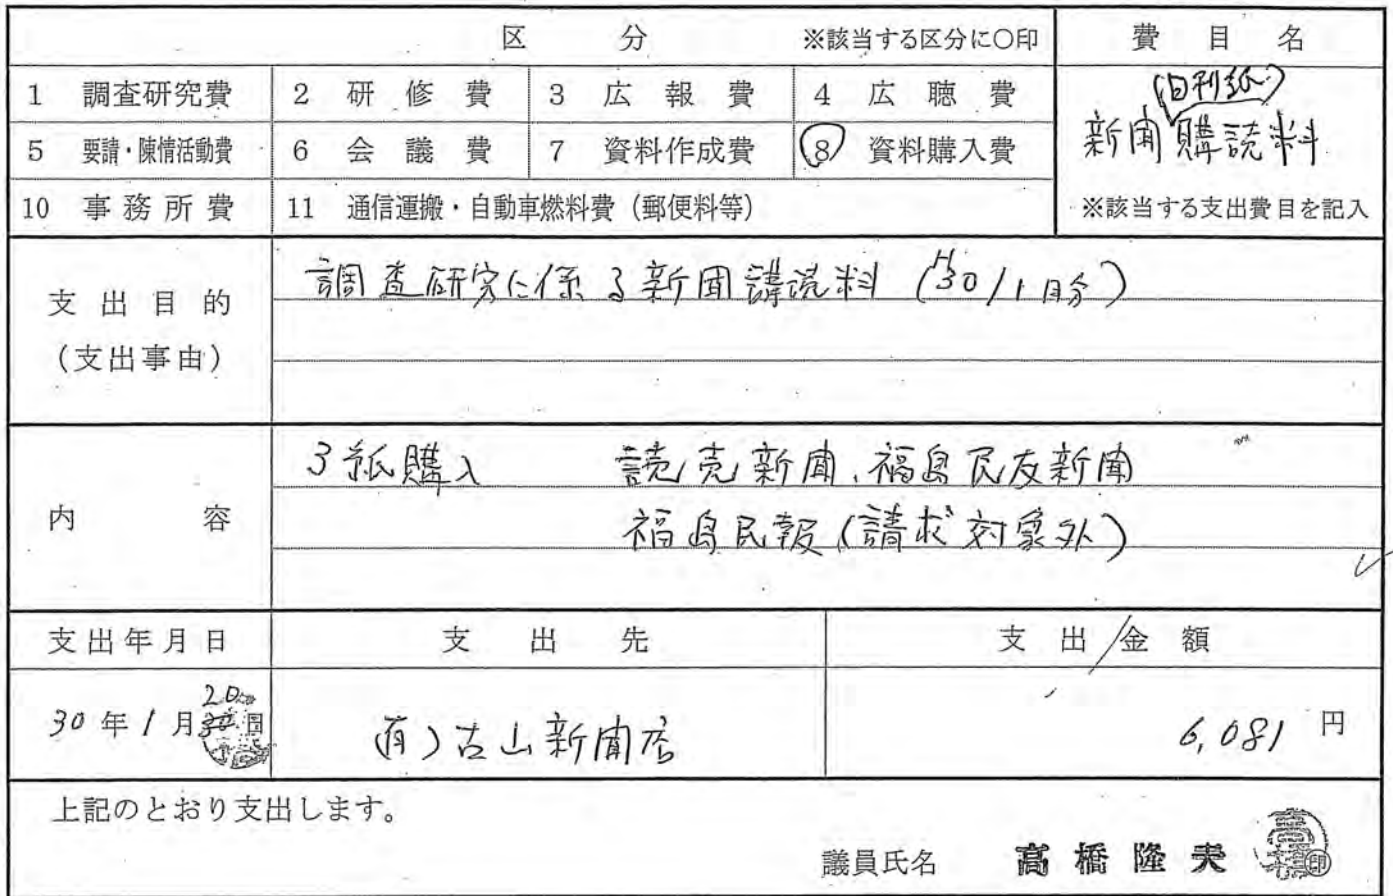 区 分 ※該当する区分に○印 費 目 名
1 調査研究費 2 研 修 費 3 広 報 費 4 広 聴 費
(日刊紙)
新聞購読料
5 要請・陳情活動費 6 会 議 費 7 資料作成費 8 資料購入費
10 事 務 所 費 11 通信運搬・自動車燃料費(郵便料等) ※該当する支出費目を記入
支 出 目 的
(支出事由)
調査研究に係る新聞講読料(H30/1月分)
内 容
3紙購入 読売新聞、福島民友新聞
福島民報(請求対象外)
支出年月日 支 出 先 支 出 金 額
20
30年1月30日 (有)古山新聞店 6,081円
上記のとおり支出します。
議員氏名 高橋隆夫 印